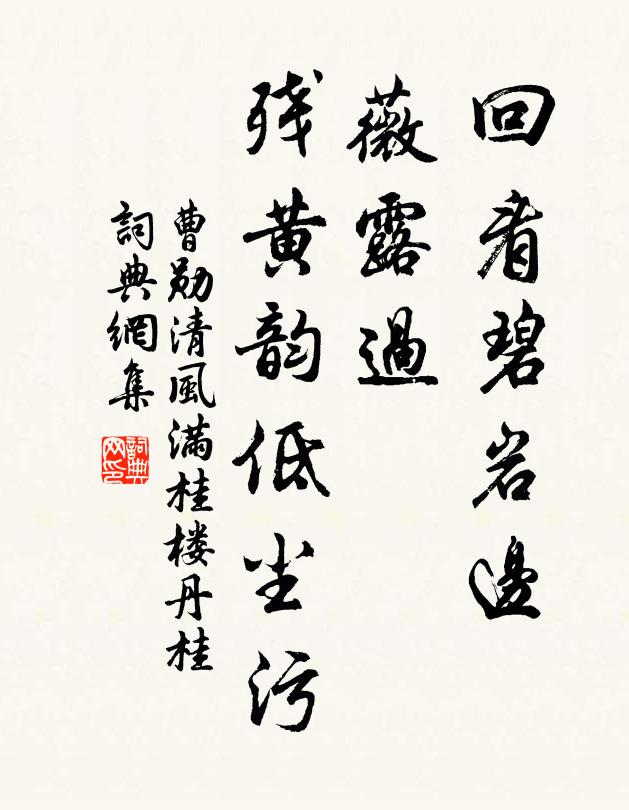 回看碧岩邊
薇露過
残黄韵低尘污
曹勛清風满桂楼丹桂
詞典網集
詞典网印